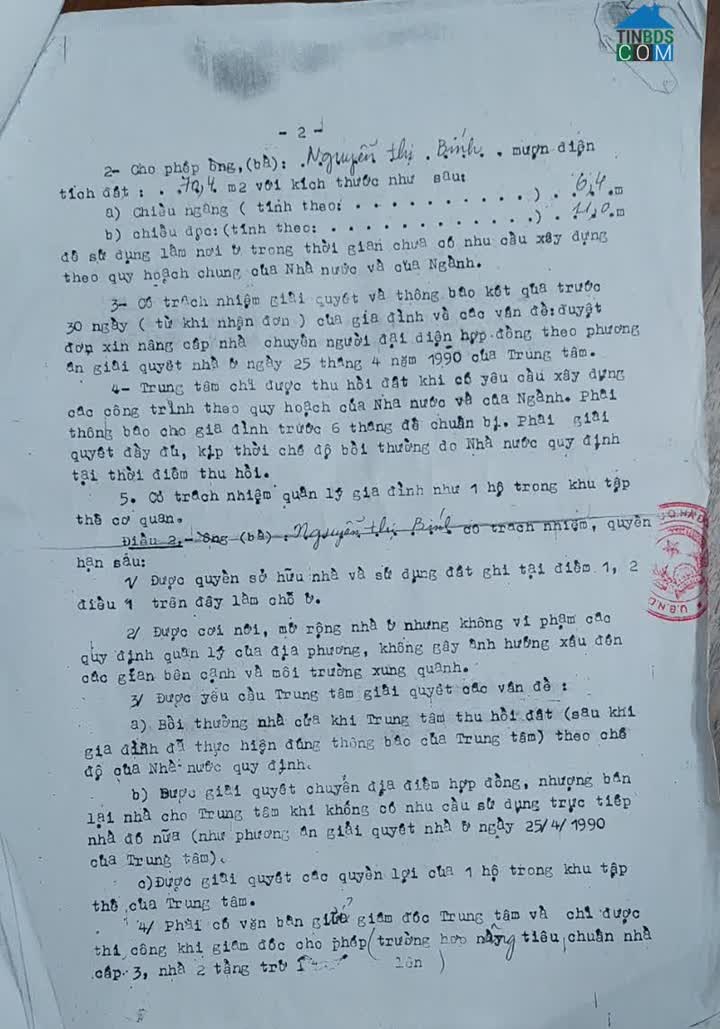 TINBDS
COM
- 2 -
2- Cho phép ông,(bà): .Nguyễn thị . Bính. . mượn diện
tích đất : . .70,4 m2 với kích thước như sau:
a) Chiều ngang ( tính theo: . . . . . . . . . . ) . .6,4.m
b) chiều dọc:(tính theo: . . . . . . . . . . .) . .11,0.m
để sử dụng làm nơi ở trong thời gian chưa có nhu cầu xây dựng
theo quy hoạch chung của Nhà nước và của Ngành.
3- Có trách nhiệm giải quyết và thông báo kết qủa trước
30 ngày ( từ khi nhận đơn ) của gia đình về các vấn đề:duyệt
đơn xin nâng cấp nhà chuyển người đại diện hợp đồng theo phương
án giải quyết nhà ở ngày 25 tháng 4 năm 1990 của Trung tâm.
4- Trung tâm chỉ được thu hồi đất khi có yêu cầu xây dựng
các công trình theo quy hoạch của Nhà nước và của Ngành. Phải
thông báo cho gia đình trước 6 tháng để chuẩn bị. Phải giải
quyết đầy đủ, kịp thời chế độ bồi thường do Nhà nước quy định
tại thời điểm thu hồi.
5. Có trách nhiệm quản lý gia đình như 1 hộ trong khu tập
thể cơ quan.
Điều 2.- Ông (bà) : Nguyễn thị Bính có trách nhiệm, quyền
hạn sau:
1/ Được quyền sở hữu nhà và sử dụng đất ghi tại điểm 1, 2
điều 1 trên đây làm chỗ ở.
2/ Được cơi nới, mở rộng nhà ở nhưng không vi phạm các
quy định quản lý của địa phương, không gây ảnh hưởng xấu đến
các gian bên cạnh và môi trường xung quanh.
3/ Được yêu cầu Trung tâm giải quyết các vấn đề :
a) Bồi thường nhà cửa khi Trung tâm thu hồi đất (sau khi
gia đình đã thực hiện đúng thông báo của Trung tâm) theo chế
độ của Nhà nước quy định.
b) Được giải quyết chuyển địa điểm hợp đồng, nhượng bán
lại nhà cho Trung tâm khi không có nhu cầu sử dụng trực tiếp
nhà đó nữa (như phương án giải quyết nhà ở ngày 25/4/1990
của Trung tâm).
c)Được giải quyết các quyền lợi của 1 hộ trong khu tập
thể của Trung tâm.
4/ Phải có văn bản giữa giám đốc Trung tâm và chỉ được
thi công khi giám đốc cho phép(trường hợp nâng tiêu chuẩn nhà
cấp 3, nhà 2 tầng trở lên )
U.B.N.D